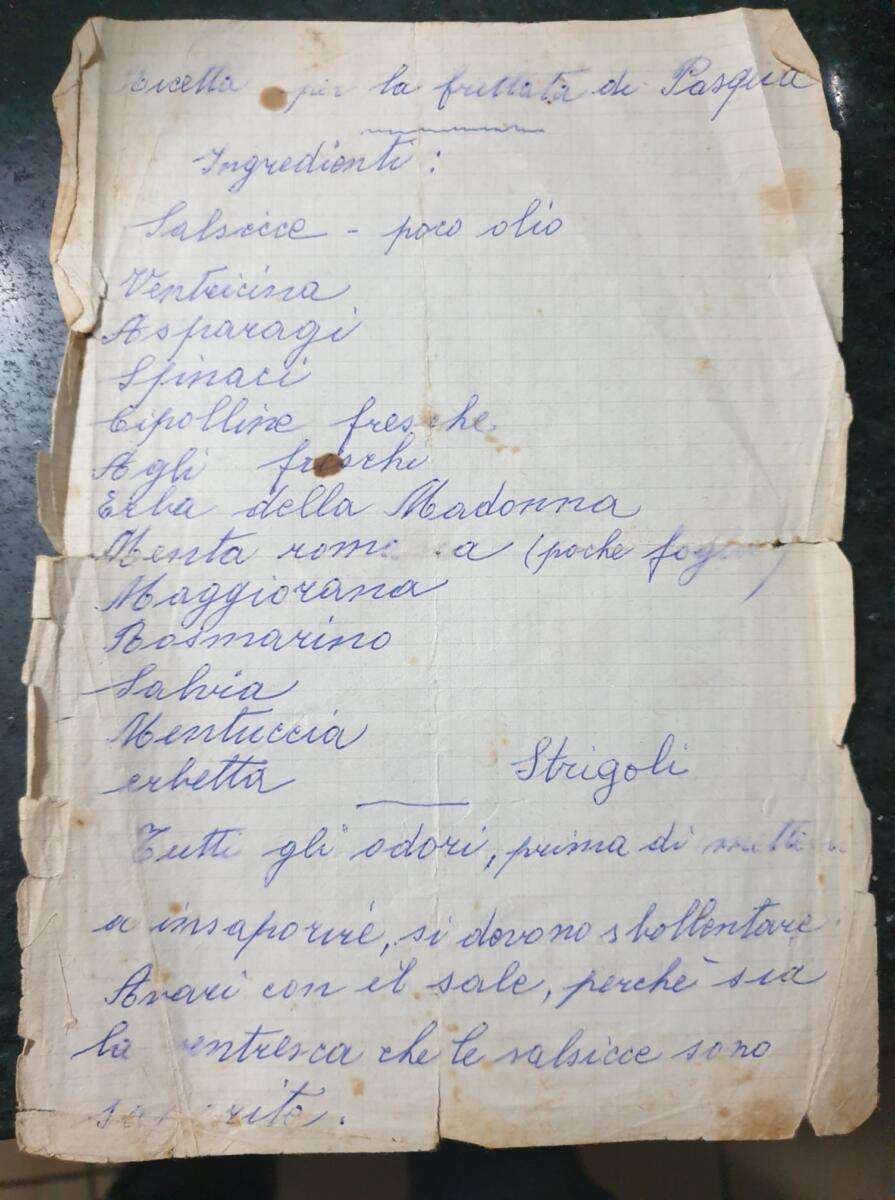 Ricetta per la frittata di Pasqua
Ingredienti :
Salsicce - poco olio
Ventricina
Asparagi
Spinaci
Cipolline fresche
Agli freschi
Erba della Madonna
Menta romana (poche foglie)
Maggiorana
Rosmarino
Salvia
Mentuccia
erbetta Strigoli
Tutti gli odori, prima di metterli
a insaporire, si devono sbollentare.
Avari con il sale, perchè sia
la ventresca che le salsicce sono
saporite.